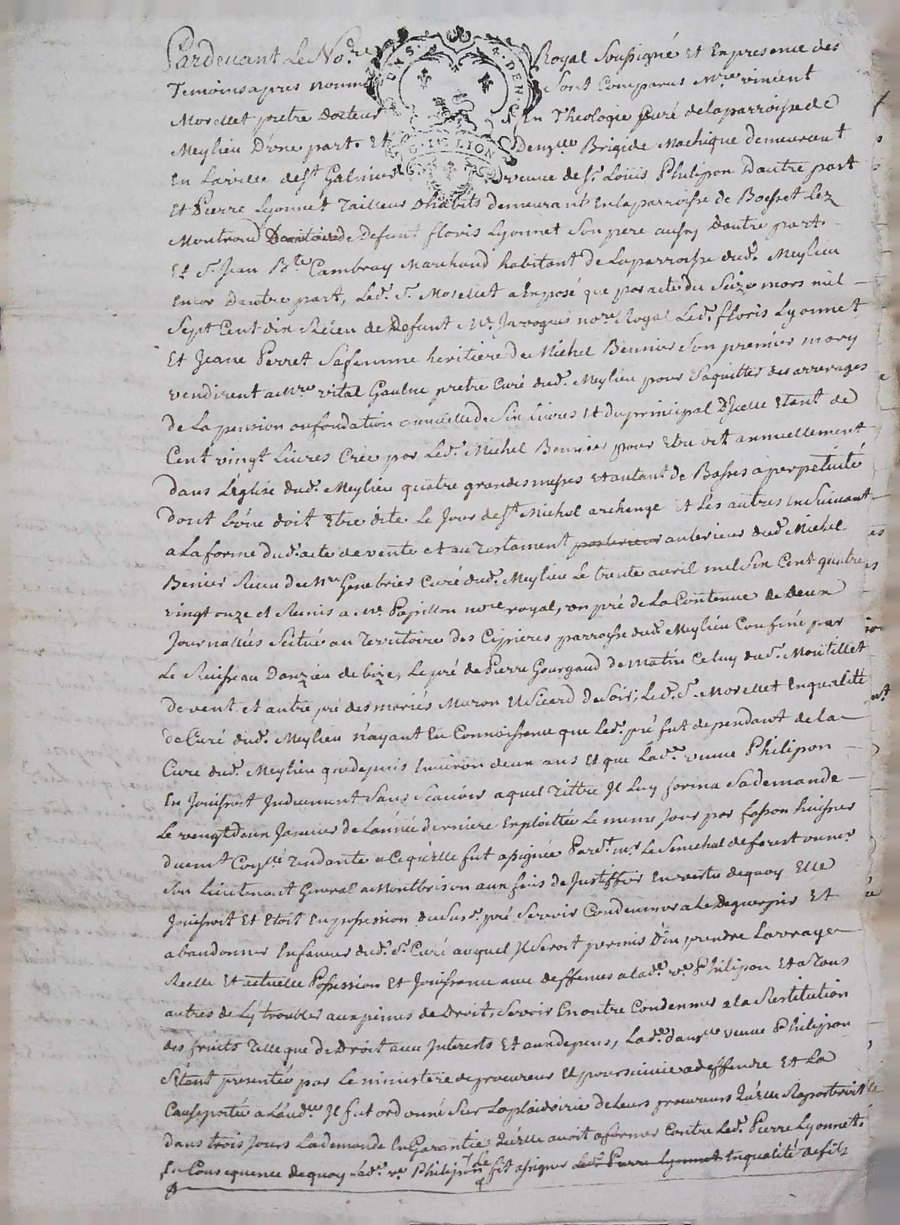 Pardevant Le No.re Royal Soussigné et En presence des
Temoins apres nommés Sont Comparus M.re vincent
Morellet pretre Docteur En Theologie Curé de la parroisse de
Meylieu D'une part. Et Dem.lle Brigide Machique demeurant
En La ville de S.t Galmier veuve de S.r Loüis Philipon D'autre part
Et Pierre Lyonnet Tailleur D'habits demeurant En la parroisse de Boisset Lez
Montrond de Defunt floris Lyonnet Son pere aussy D'autre part.
Et S.r Jean B.te Cambray Marchand habitant de La parroisse dud. Meylieu
Encor D'autre part, Led. S.r Morellet a Exposé que par acte du Seize mars mil
Sept Cent dix Receu de Defunt M.e Javogues no.re Royal Led. floris Lyonnet
Et Jeane Perret Sa femme heritiere de Michel Bennier Son premier mary
vendirent a M.re vital Gaulne pretre Curé dud. Meylieu pour S'aquitter des arrerages
de La pension ou fondation annuelle de Six Livres Et du principal D'Icelle Etant de
Cent vingt Livres Crée par Led. Michel Bennier pour Etre dit annuellement
dans L'Eglise dud. Meylieu quatre grandes messes et autant de Basses a perpetuité
dont L'une doit Etre dite Le Jour de S.t Michel archange Et Les autres En Suivant
a La forme dud. acte de vente et au Testament posterieur anterieur dud. Michel
Benier Receu de M.re Genebrier Curé dud. Meylieu Le trente avril mil Six Cent quatre
vingt onze et Remis a M.e Papillon no.re royal, un pré de La Contenue de Deux
Journallées Scitué au Territoire des Cipieres parroisse dud. Meylieu Confiné par
Le Ruisseau Donzieu de bize, Le pré de Pierre Gourgaud de matin Celuy dud. Montillet
de vent, et autre pré des mariés Muron Et Sicard de Soir, Led. S.r Morellet En qualité
de Curé dud. Meylieu n'ayant Eu Connoissance que Led. pré fut dependant de la
Cure dud. Meylieu que depuis Environ deux ans Et que La d.e veuve Philipon
En Jouissoit Induement Sans Scavoir a quel Tittre Il Luy forma Sa demande
Le vingt deux Janvier de L'année derniere Exploitée Le meme Jour par fasson huissier
duem.t Con.llé Tendante a Ce qu'elle fut assignée Pard.t m.r Le Senechal de forest ou m.r
Son Lieutenant General a Montbrison aux fins de Justiffier En vertu de quoy Elle
Jouissoit Et Etoit En possession du Sus.d pré Se voir Condemner a Le Deguerpir Et
abandonner En faveur dud. S.r Curé auquel Il Seroit permis D'en prendre La vraye
Reelle Et actuelle Possession Et Jouissance avec deffenses a lad.e v.e Philipon Et a Tous
autres de L'y troubler aux peines de Droit, Se voir En outre Condemner a la Restitution
des fruits Telle que de Droit aux Interests Et aux depens, Lad.e dam.lle veuve Philipon
S'etant presentée par Le ministere de procureur Et poursuivie a deffendre Et La
Cause portée a L'aud.ce Il fut ordonné Sur La plaidoirie de Leurs procureurs qu'elle Rapporteroit
dans trois Jours La demande En Garantie qu'elle avoit a former Contre Led. Pierre Lyonnet.
En Consequence de quoy Lad. v.e Philipon Le fit assigner Led. Pierre Lyonnet En qualité de fils